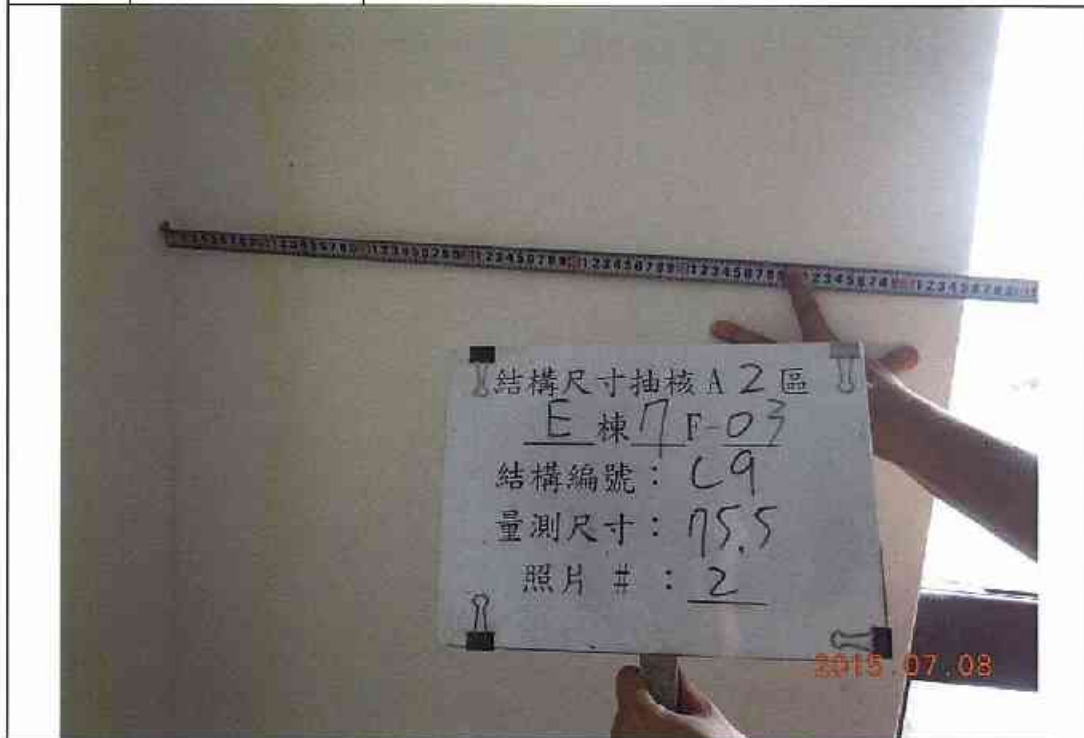 結構尺寸抽核 A 2 區
E 棟 7 F-03
結構編號：C9
量測尺寸：75.5
照片 #：2
2015.07.08